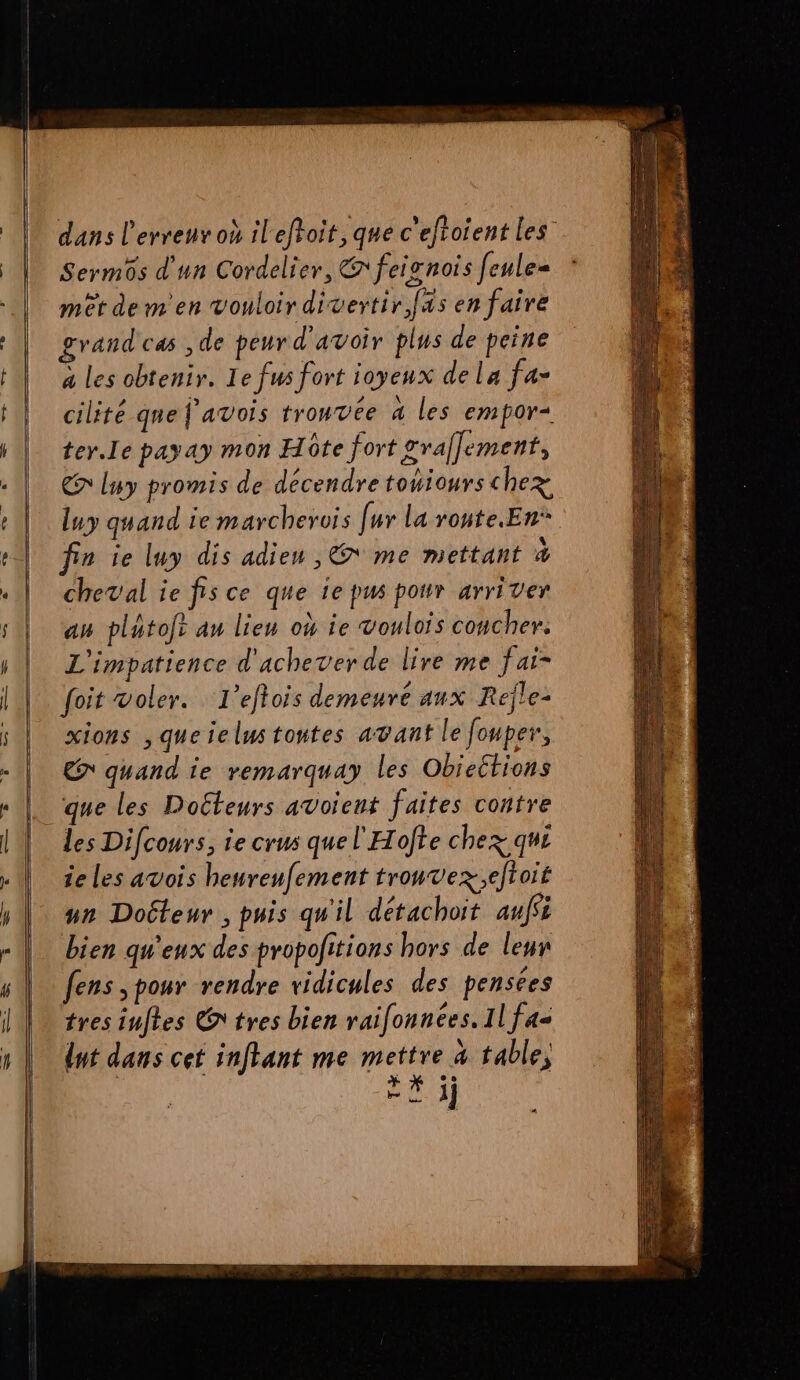 dans l'erreur où il eſtoit, que c'eſtoient les
Sermõs d'un Cordelier, & feignois ſeule-
mẽt de m'en vouloir divertir, ſãs en faire
grand cas, de peur d'avoir plus de peine
à les obtenir. Ie fus fort ioyeux de la fa-
cilité que j'avois trouvée à les empor-
ter. Ie payay mon Hôte fort graſſement,
& luy promis de décendre toûiours chez
luy quand ie marcherois ſur la route. En-
fin ie luy dis adieu, & me mettant à
cheval ie fis ce que ie pus pour arriver
au plûtoſt au lieu où ie voulois coucher.
L'impatience d'achever de lire me fai-
ſoit voler. I'eſtois demeuré aux Refle-
xions, que ie lus toutes avant le ſouper,
& quand ie remarquay les Obiections
que les Docteurs avoient faites contre
les Diſcours, ie crus que l'Hoſte chez qui
ie les avois heureuſement trouvez, eſtoit
un Docteur, puis qu'il détachoit auſſi
bien qu'eux des propoſitions hors de leur
ſens, pour rendre ridicules des pensées
tres iuſtes & tres bien raiſonnées. Il fa-
lut dans cet inſtant me mettre à table,
** ij